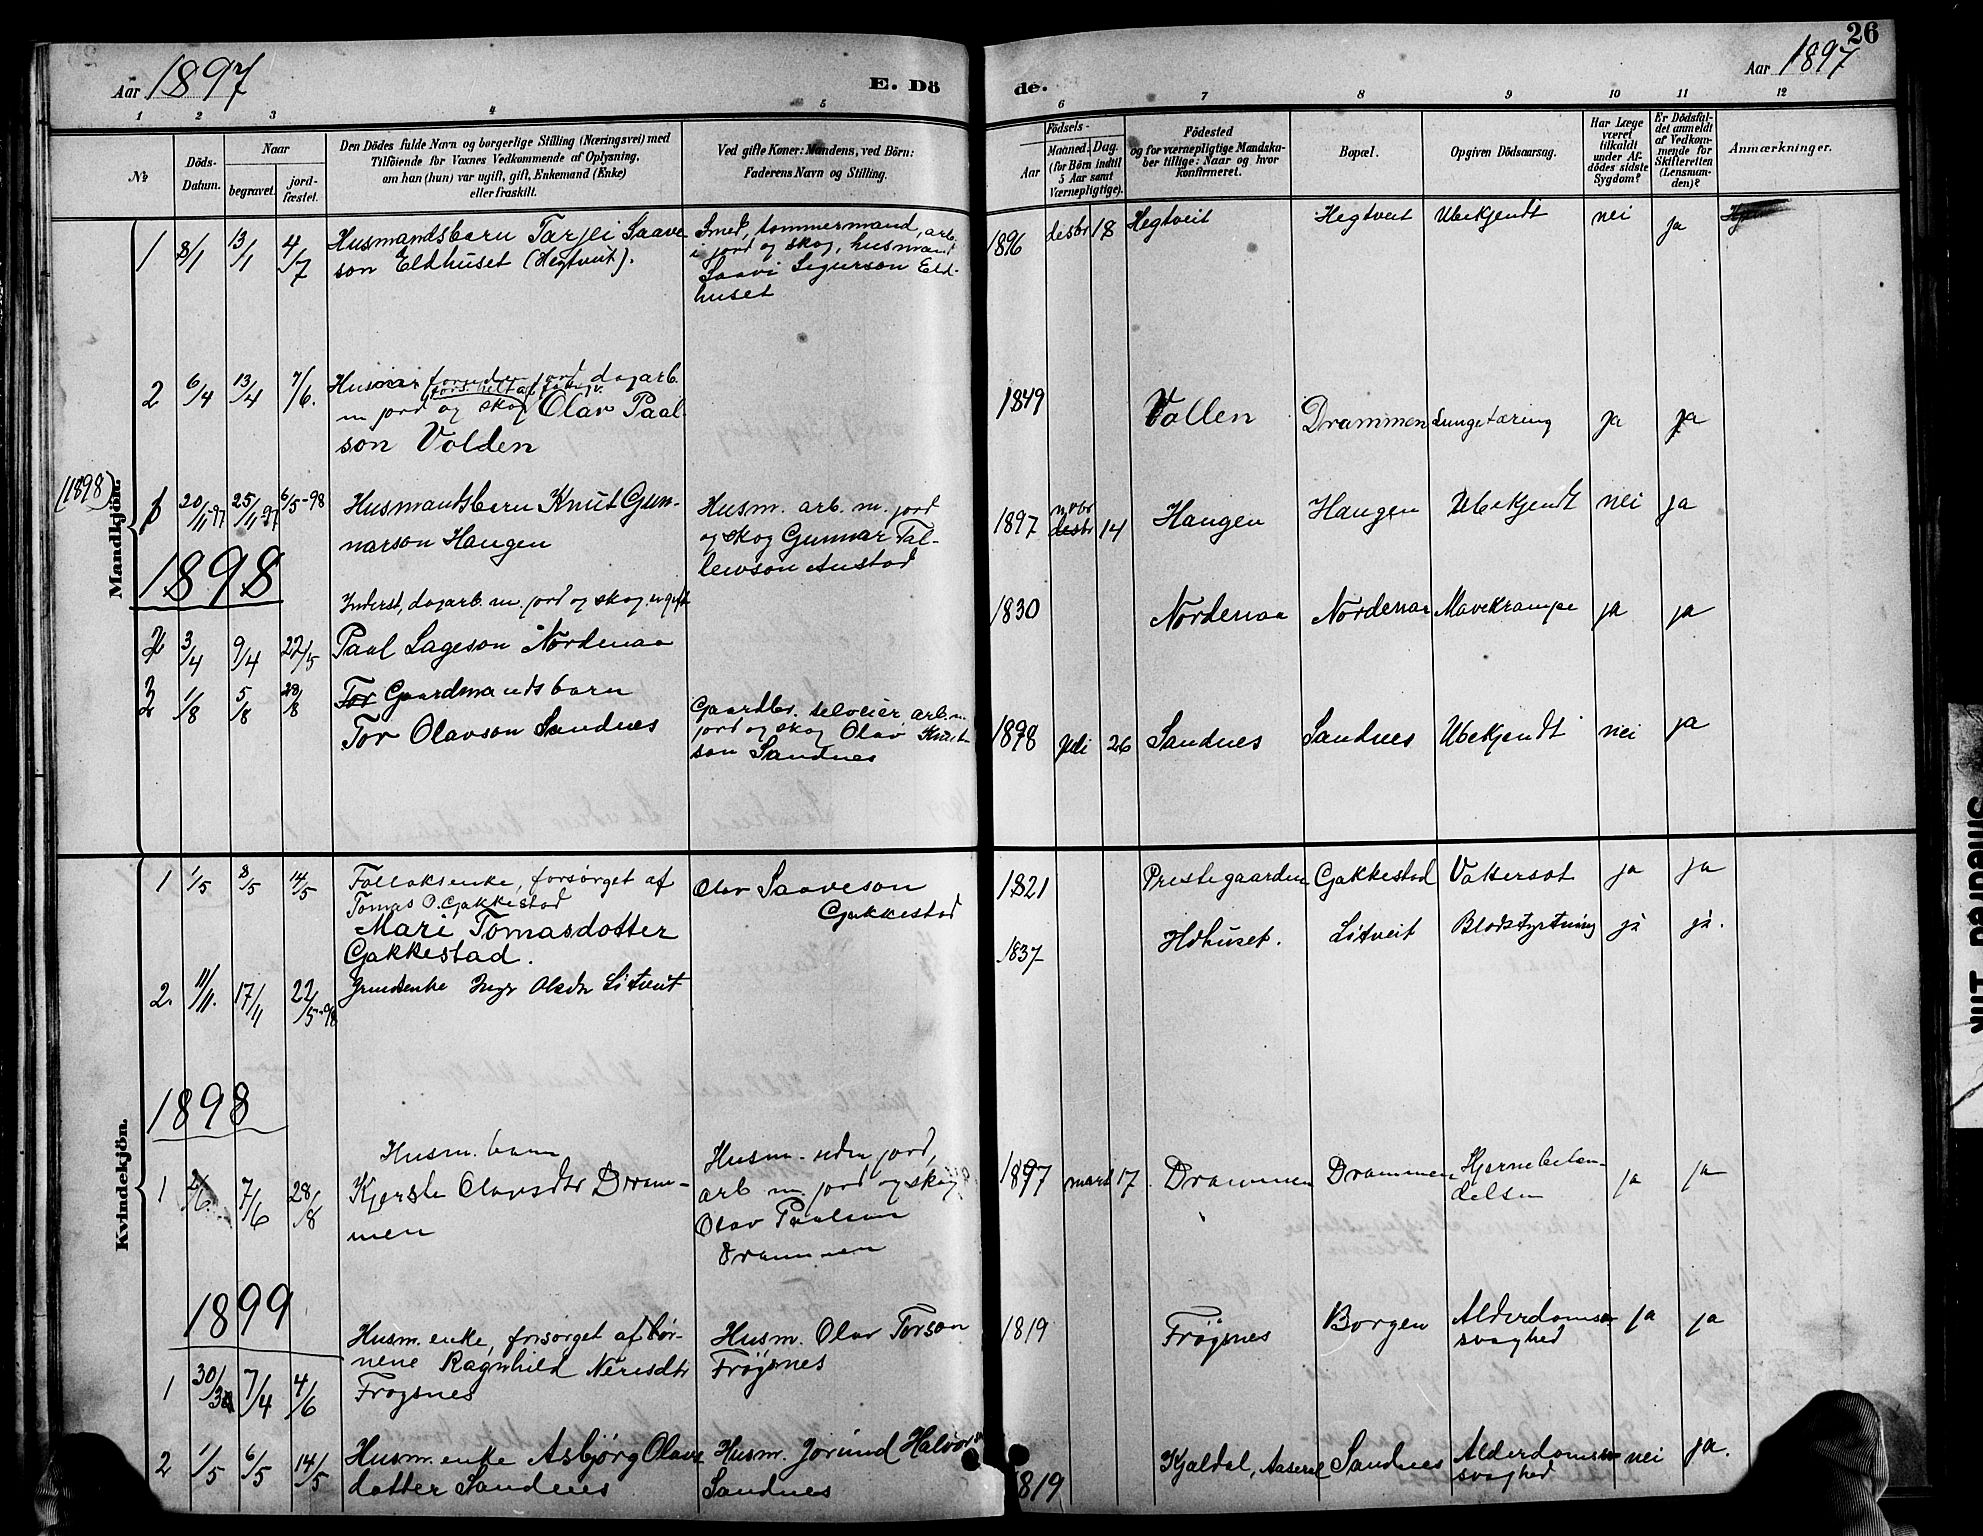 26
Aar 1897
E. Dö
de.
Aar 1897
1 2 3 4 5 6 7 8 9 10 11 12
№
Döds-
Datum.
Naar
begravet.
jord-
fæstet.
Den Dödes fulde Navn og borgerlige Stilling (Næringsvei) med
Tilföiende for Voxnes Vedkommende af Oplysning,
om han (hun) var ugift, gift, Enkemand (Enke)
eller fraskilt.
Ved gifte Koner: Mandens, ved Börn:
Faderens Navn og Stilling.
Födsels-
Aar
Maaned. Dag.
(for Börn indtil
5 Aar samt
Værnepligtige).
Födested
og for værnepligtige Mandska-
ber tillige: Naar og hvor
konfirmeret.
Bopæl.
Opgiven Dödsaarsag.
Har Læge
været
tilkaldt
under Af-
dödes sidste
Sygdom?
Er Dödsfal-
det anmeldt
af Vedkom-
mende for
Skifteretten
(Lensman-
den)?
Anmærkninger.
Mandkjön.
1 8/1 13/1 4/7
Husmandsbarn Tarjei Saave
son Eldhuset (Hegtveit).
Smed, tommermand, arb.
i jord og skog, husmand
Saavi Sigurson Eld-
huset
1896 desbr 18 Hegtveit Hegtveit Ubekjendt nei ja
2 6/4 13/4 7/6.
Husman jord dagarb.
m jord og skog Olav Paal
son Volden
1849 Vollen Drammen Lungetæring ja ja
(1898)
20/11-97 25/11-97 6/5-98
Husmandsbarn Knut Gun-
narson Haugen
Husm. arb. m. jord
og skog Gunnar Tal-
levson Austad
1897 novbr desbr 14 Haugen Haugen Ubekjendt nei ja
1898
Inderst, dagarb. m. jord og skog, ugift
3/4 9/4 22/5 Paal Lageson Nordenaa
1830 Nordenaa Nordenaa Mavekrampe ja ja
2 1/8 5/8 28/8
Tor Gaardmandsbarn
Tor Olavson Sandnes
Gaardbr. selveier, arb. m
jord og skog Olav Knut
son Sandnes
1898 Juli 26 Sandnes Sandnes Ubekjendt nei ja
Kvindekjön.
1 1/5 8/5 14/5
Follaksenke, forsørget af
Tomas O. Gakkestad
Mari Tomasdotter
Gakkestad.
Olav Saaveson
Gakkestad
1821 Prestegaarden Gakkestad Vattersot ja ja
2. 11/11. 17/11 22/5-98
Inge Olsdtr Litveit
1837 Litveit Blodstyrtning ja ja.
1898
1 7/6 28/8
Husm. barn
Kjerste Olavsdtr Dram-
men
Husm. uden jord,
arb m. jord og skog
Olav Paalson
Drammen
1897 mars 17 Drammen Drammen Hjernebeten-
delsen ja ja
1899
1 30/3 7/4 4/6
Husm. enke, forsørget af bør-
nene Ragnhild Nerisdtr
Frøysnes
Husm. Olav Torson
Frøysnes
1819 Frøysnes Borgen Alderdoms-
svaghed ja ja
2 1/5 6/5 14/5
Husm. enke Asbjørg Olavs
datter Sandnes
Husm. Jorund Halvors
Sandnes
1819 Kjaldal, Aaseral Sandnes Alderdoms-
svaghed nei ja.